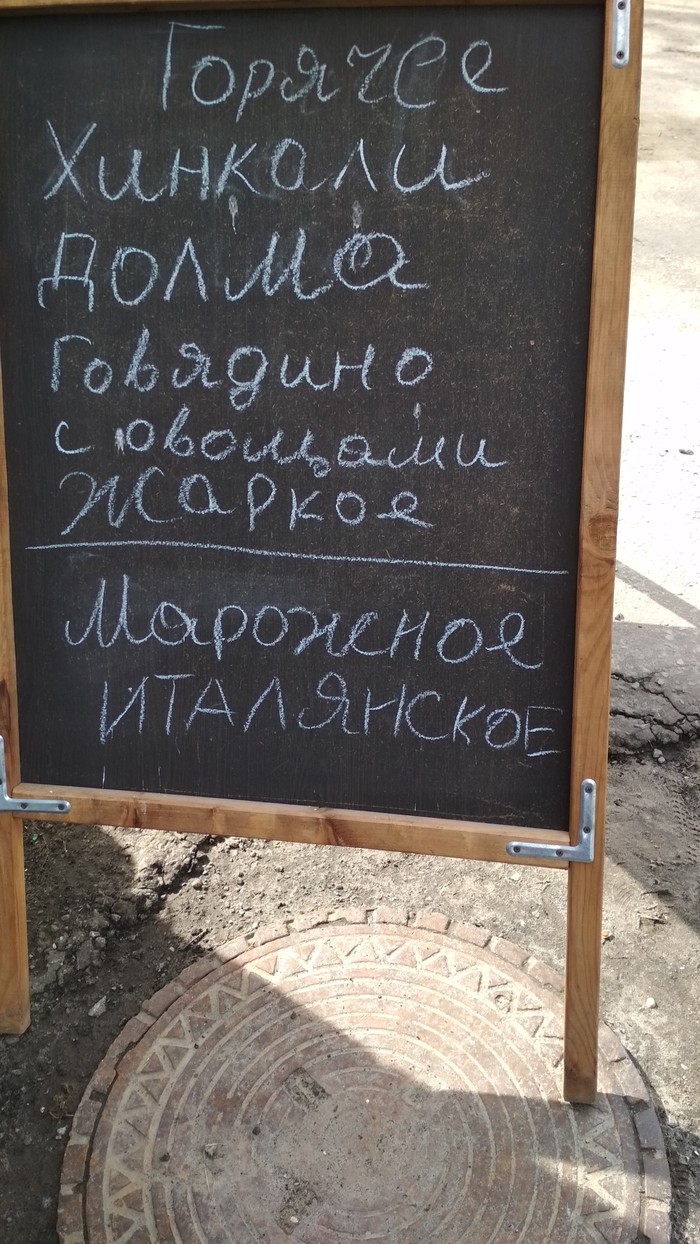 Горячее
Хинкали
Долма
Говядино
с овощами
Жаркое
Мароженое
ИТАЛЯНСКОЕ